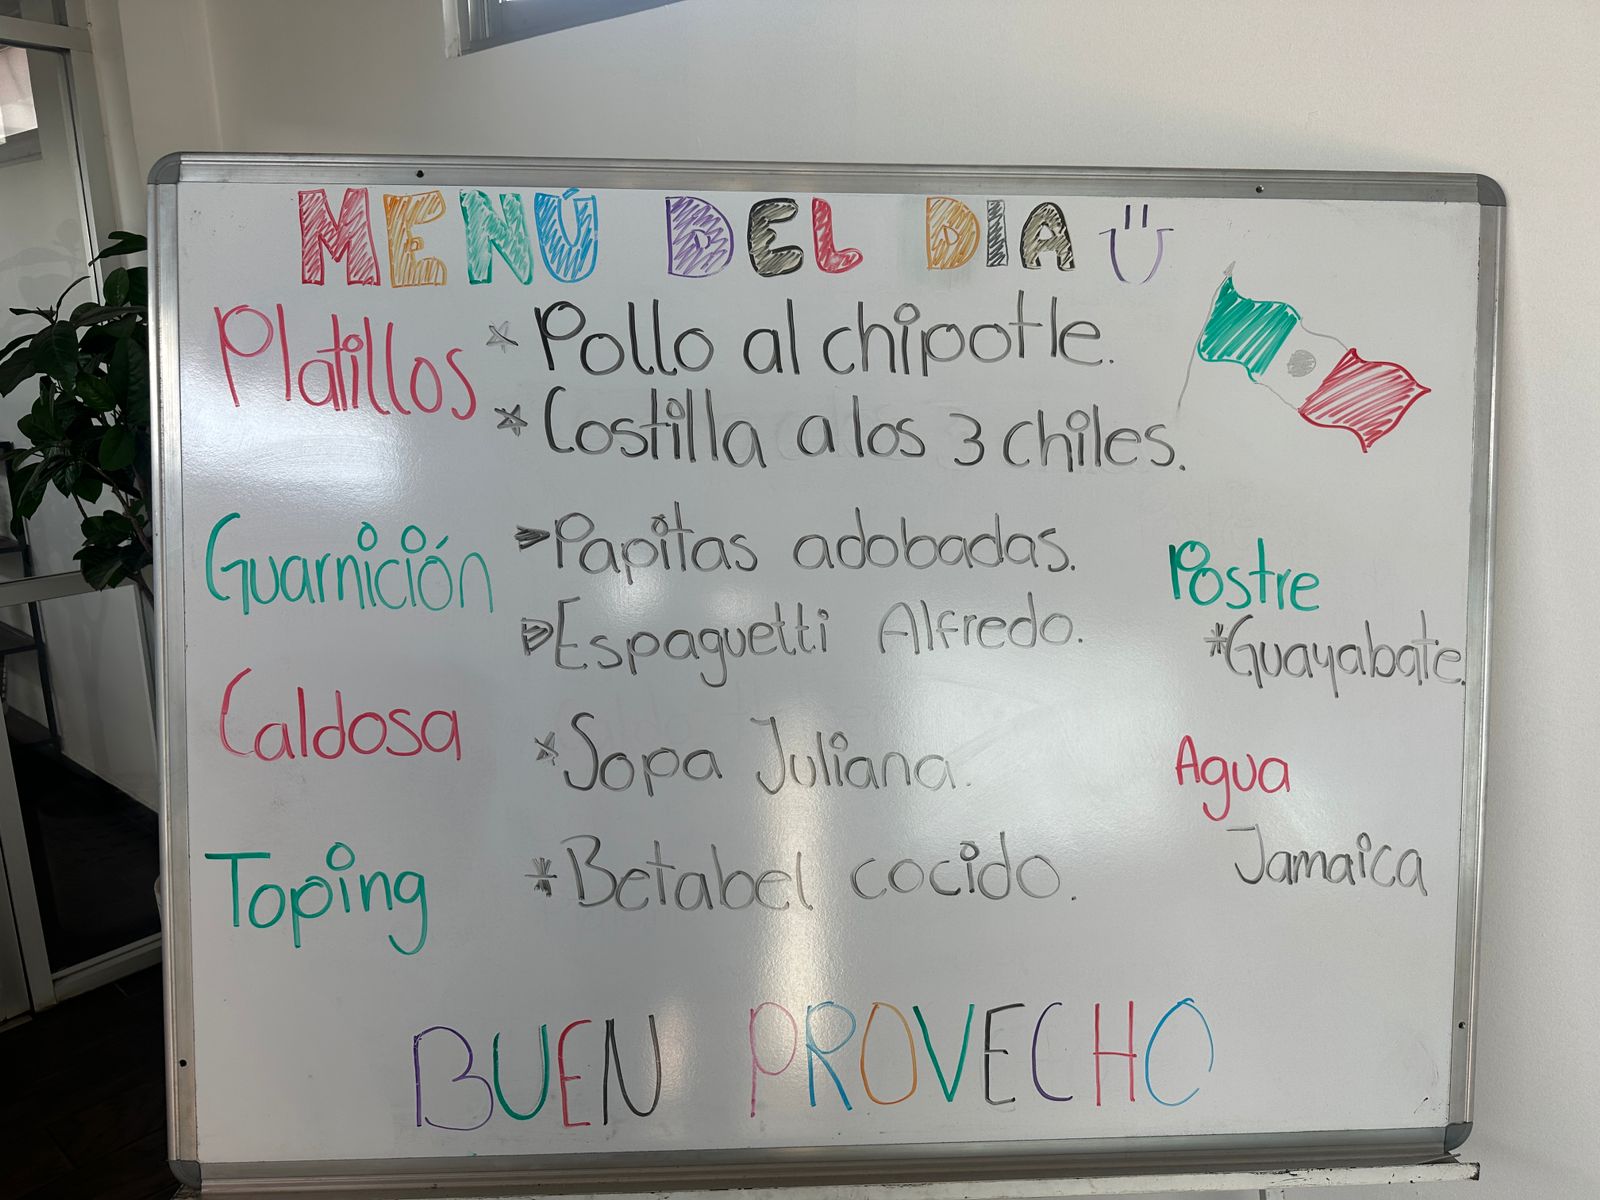 MENÚ DEL DIA
Platillos * Pollo al chipotle.
* Costilla a los 3 chiles.
Guarnición Papitas adobadas.
Espaguetti Alfredo.
Postre
* Guayabate.
Caldosa * Sopa Juliana.
Agua
Jamaica
Toping * Betabel cocido.
BUEN PROVECHO